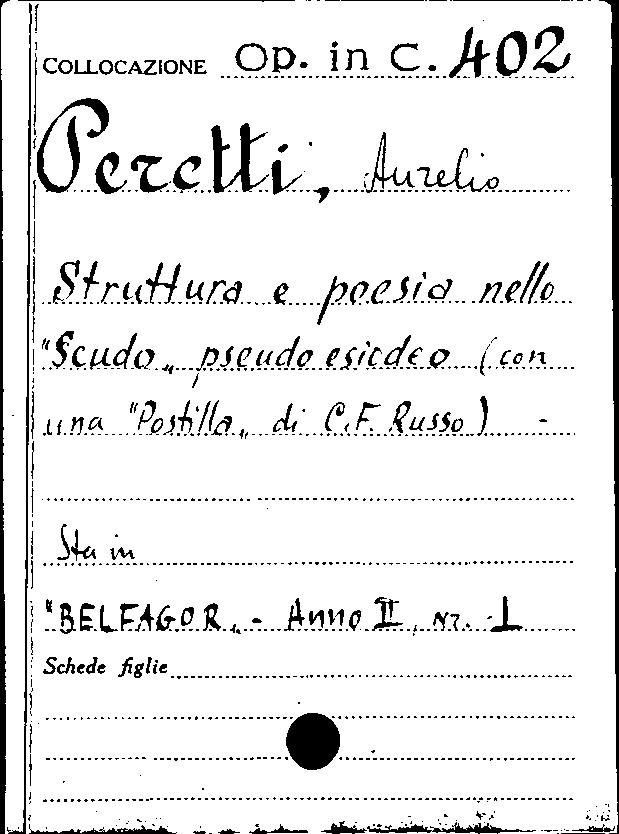 COLLOCAZIONE Op. in C. 402
Peretti, Aurelio
Struttura e poesia nello
"Scudo„ pseudo esiodeo (con
una "Postilla„ di C.F. Russo) -
Sta in
"BELFAGOR„ - Anno II, nr. 1
Schede figlie